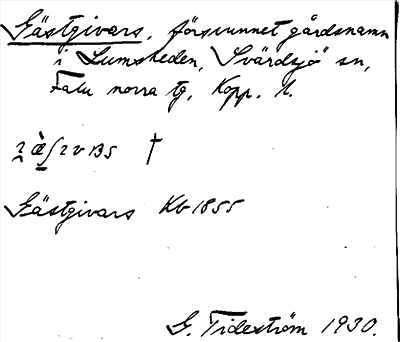 Gästgivars, försvunnet gårdsnamn
i Lumsheden, Svärdsjö sn,
Falu norra tg, Kopp. l.
†
Gästgivars Kb 1855
G. Tideström 1930.